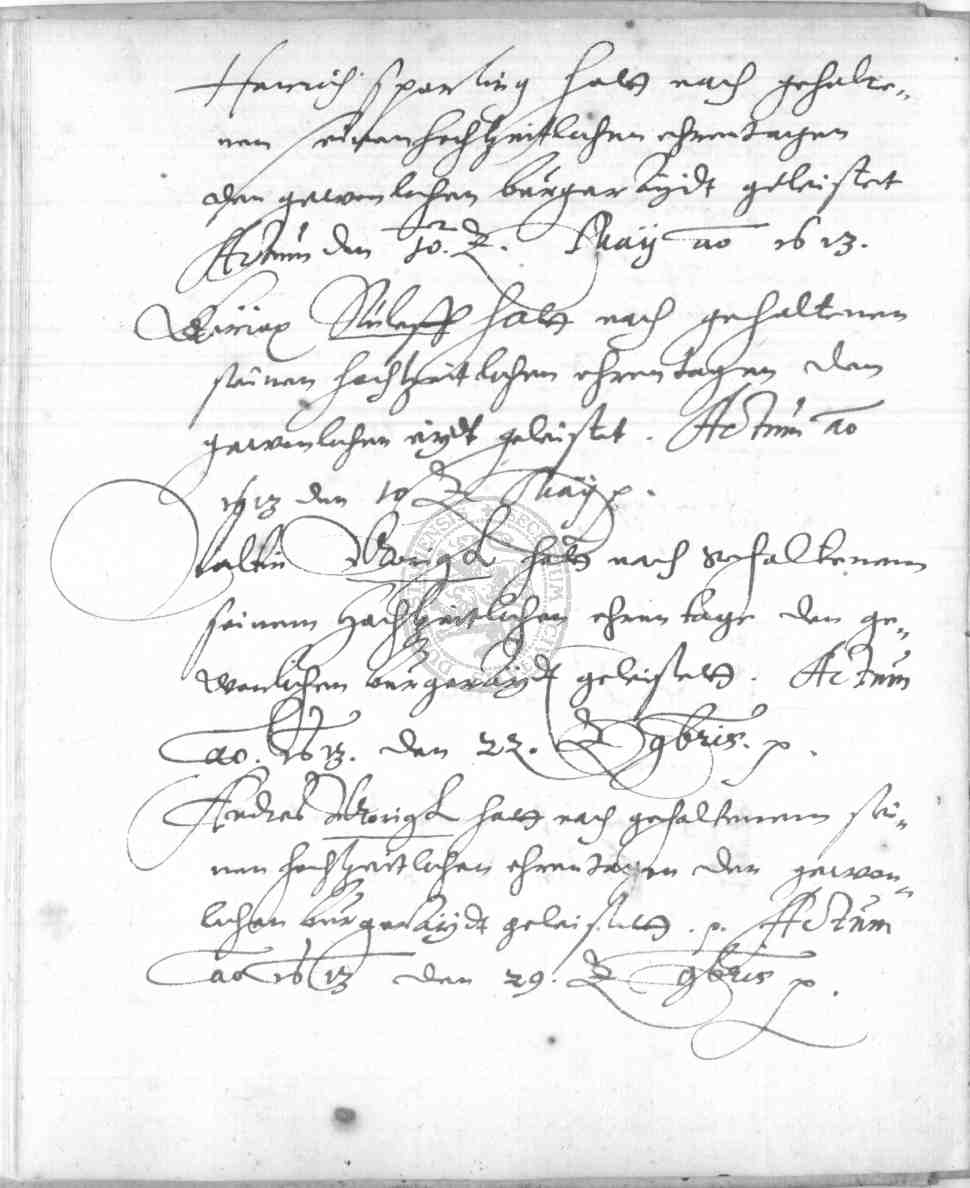 Henrich Sparling hatt nach gehalte=
nen seinen hochtzeitlichen ehrentagen
den gewonlichen bürger äydt geleistet
Actum den 10. Maÿ ao 1613.
Ciriax hatt nach gehaltenen
seinen hochtzeitlichen ehrentagen den
gewonlichen eÿdt geleistet. Actum ao
1613 den 10 Maÿ p.
Valtin hatt nach gehaltenem
seinem hochtzeitlichen ehrentage den ge=
wonlichen bürgeräydt geleistett. Actum
ao. 1613. den 22. 9bris. p.
Andres hatt nach gehaltenem sei=
nen hochtzeitlichen ehrentagen den gewon=
lichen bürgeräÿdt geleistett. p. Actum
ao 1613 den 29. 9bris p.